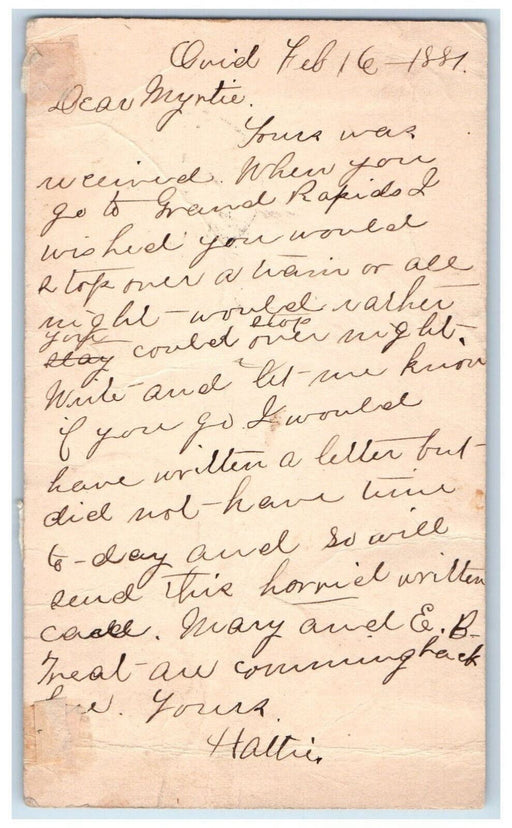 Ovid Feb 16 - 1881.
Dear Myrtie.
Yours was
received. When you
go to Grand Rapids I
wished you would
stop over a train or all
night - would rather
you
stay could stop over night.
Write and let me know
if you go I would
have written a letter but
did not have time
to-day and so will
send this horrid written
card. Mary and E. B.
Treat are comming back
Yours
Hattie.